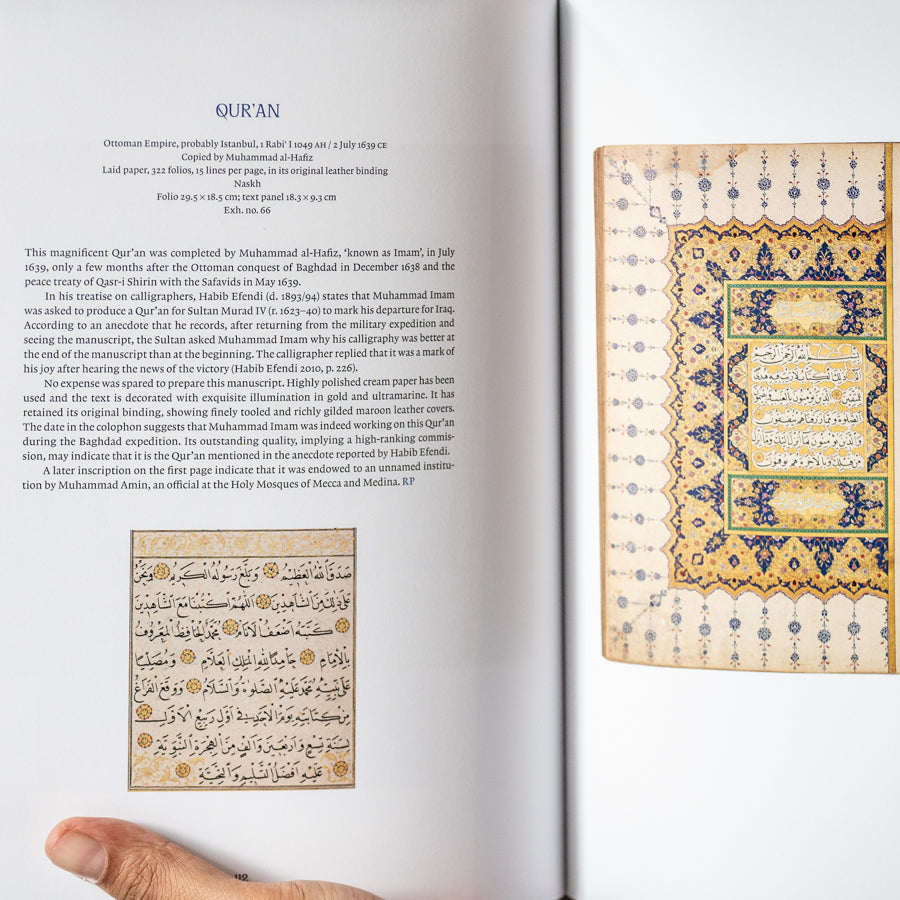 QUR'AN
Ottoman Empire, probably Istanbul, 1 Rabi' I 1049 AH / 2 July 1639 CE
Copied by Muhammad al-Hafiz
Laid paper, 322 folios, 15 lines per page, in its original leather binding
Naskh
Folio 29.5 × 18.5 cm; text panel 18.3 × 9.3 cm
Exh. no. 66
This magnificent Qur'an was completed by Muhammad al-Hafiz, 'known as Imam', in July
1639, only a few months after the Ottoman conquest of Baghdad in December 1638 and the
peace treaty of Qasr-i Shirin with the Safavids in May 1639.
In his treatise on calligraphers, Habib Efendi (d. 1893/94) states that Muhammad Imam
was asked to produce a Qur'an for Sultan Murad IV (r. 1623–40) to mark his departure for Iraq.
According to an anecdote that he records, after returning from the military expedition and
seeing the manuscript, the Sultan asked Muhammad Imam why his calligraphy was better at
the end of the manuscript than at the beginning. The calligrapher replied that it was a mark of
his joy after hearing the news of the victory (Habib Efendi 2010, p. 226).
No expense was spared to prepare this manuscript. Highly polished cream paper has been
used and the text is decorated with exquisite illumination in gold and ultramarine. It has
retained its original binding, showing finely tooled and richly gilded maroon leather covers.
The date in the colophon suggests that Muhammad Imam was indeed working on this Qur'an
during the Baghdad expedition. Its outstanding quality, implying a high-ranking commis-
sion, may indicate that it is the Qur'an mentioned in the anecdote reported by Habib Efendi.
A later inscription on the first page indicate that it was endowed to an unnamed institu-
tion by Muhammad Amin, an official at the Holy Mosques of Mecca and Medina. RP
صدق الله العظيم وبلغ رسوله الكريم ونحن
على ذلك من الشاهدين اللهم اكتبنا مع الشاهدين
كتبه اضعف الانام محمد الحافظ المعروف
بالامام حامدا لله الملك العلام ومصليا
على نبيه محمد عليه الصلوة والسلام ووقع الفراغ
من كتابته يوم الاحد في اول ربيع الاول
لسنة تسع واربعين والف من الهجرة النبوية
عليه افضل التسليم والتحية
112
بسم الله الرحمن الرحيم
الم ذلك الكتاب لا ريب فيه هدى
للمتقين الذين يؤمنون بالغيب ويقيمون
الصلوة ومما رزقناهم ينفقون
والذين يؤمنون بما انزل اليك وما انزل
من قبلك وبالاخرة هم يوقنون